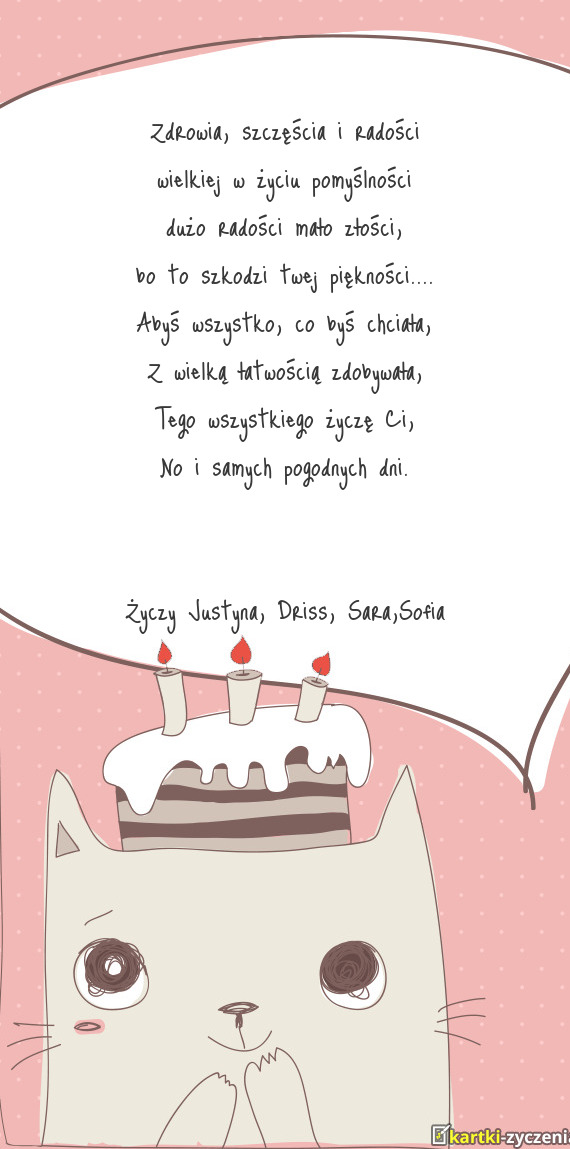 Zdrowia, szczęścia i radości
wielkiej w życiu pomyślności
dużo radości mało złości,
bo to szkodzi twej piękności....
Abyś wszystko, co byś chciała,
Z wielką łatwością zdobywała,
Tego wszystkiego życzę Ci,
No i samych pogodnych dni.
Życzy Justyna, Driss, Sara,Sofia
kartki-zyczeni